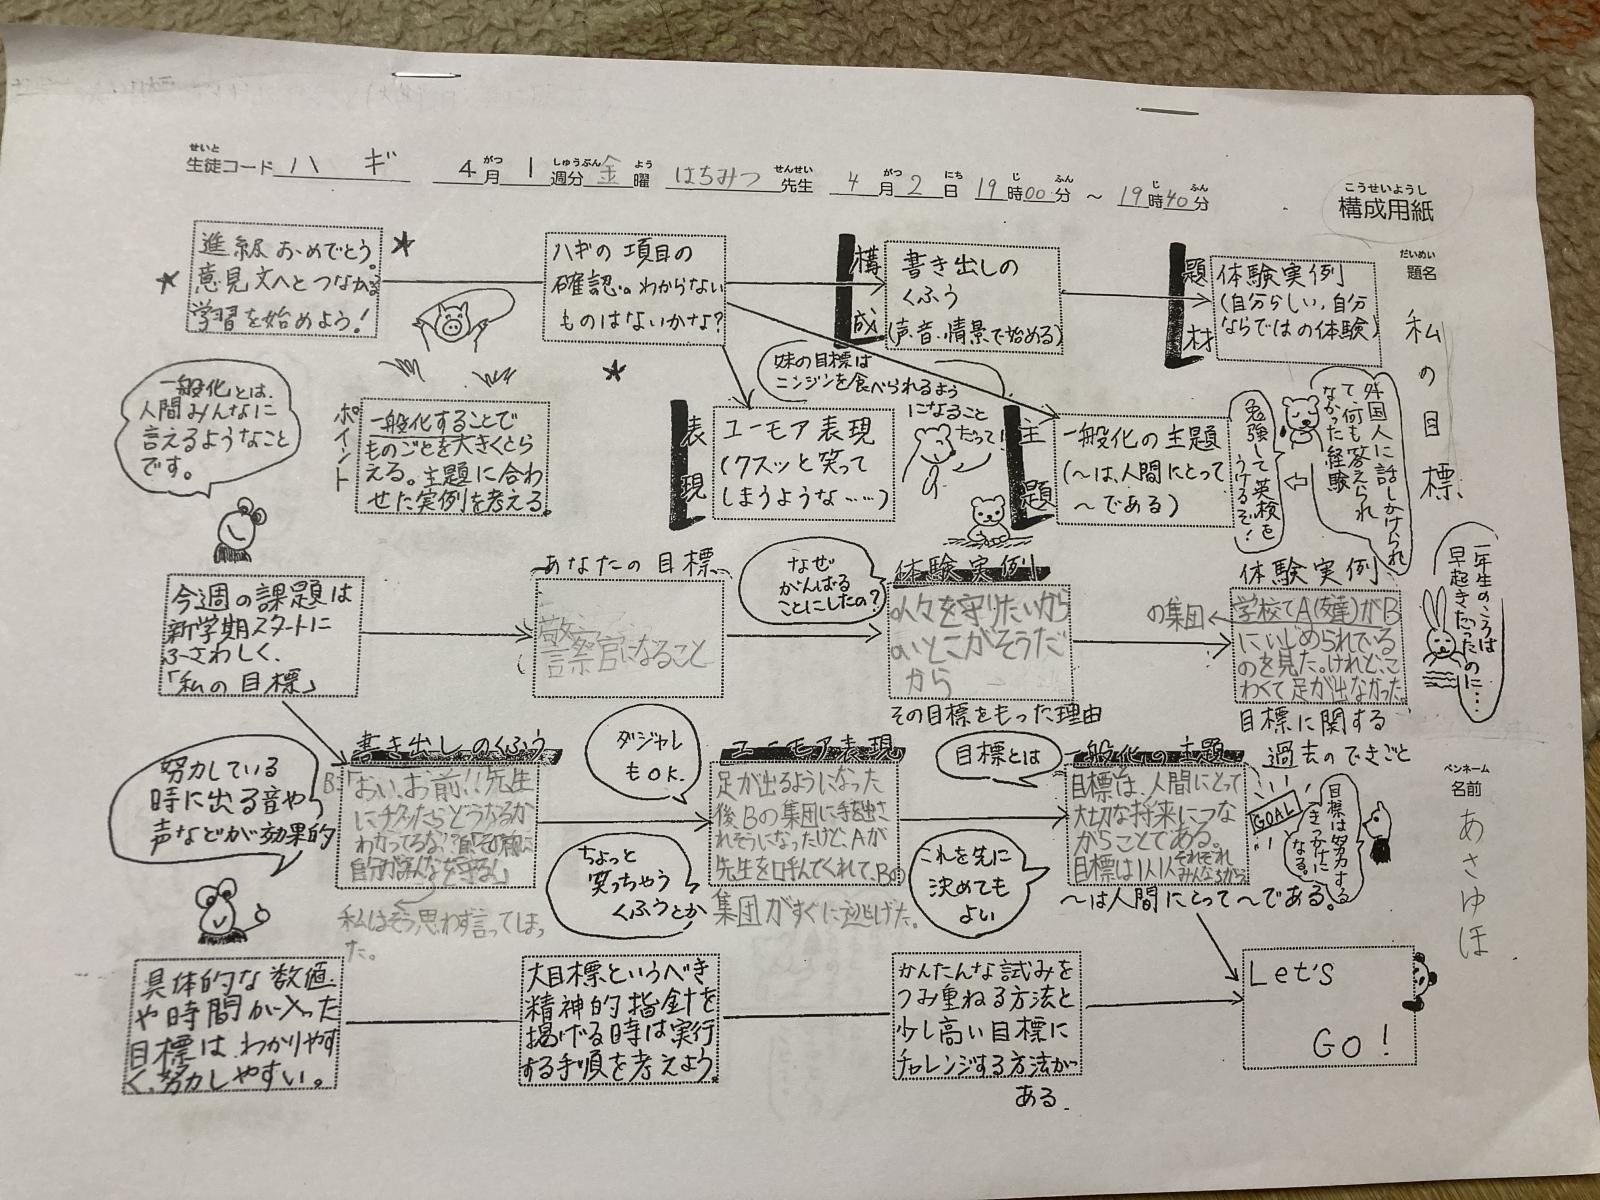 せいと がつ しゅうぶん よう せんせい がつ にち じ ふん じ ふん
生徒コード ハギ 4月1週分 金曜 はちみつ先生 4月2日 19時00分 ～ 19時40分
こうせいようし
構成用紙
だいめい
題名
私の目標
ペンネーム
名前
あさゆほ
進級おめでとう。
意見文へとつながる
学習を始めよう!
ハギの項目の
確認。わからない
ものはないかな?
構成
書き出しの
くふう
(声・音・情景で始める)
題材
体験実例
(自分らしい,自分
ならではの体験)
一般化とは、
人間みんなに
言えるようなこと
です。
ポイント
一般化することで
ものごとを大きくとら
える。主題に合わ
せた実例を考える。
表現
ユーモア表現
(クスッと笑って
しまうような……)
妹の目標は
ニンジンを食べられるよう
になること
だって!
主題
一般化の主題
(〜は、人間にとって
〜である)
外国人に話しかけられ
て、何も答えられ
なかった経験
⇦
勉強して英検を
うけるぞ!
今週の課題は
新学期スタートに
ふさわしく、
「私の目標」
あなたの目標
警察官になること
なぜ
がんばる
ことにしたの?
体験実例
人々を守りたいから
いとこがそうだ
から
その目標をもった理由
体験実例
の集団←
学校でA(友達)がB
にいじめられている
のを見た。けれど、こ
わくて足が出なかった。
目標に関する
過去のできごと
一年生のころは
早起きだったのに…
努力している
時に出る音や
声などが効果的
書き出しのくふう
B:「おい、お前!!先生
にチクったらどうなるか
わかってるな?」
自分がみんなを守る!」
私はそう思わず言ってしまっ
た。
ダジャレ
もOK.
ちょっと
笑っちゃう
くふうとか
ユーモア表現
足が出るようになった
後Bの集団に手を出さ
れそうになったけど、Aが
先生を呼んでくれて、Bの
集団がすぐに逃げた。
目標とは
これを先に
決めても
よい
一般化の主題
目標は、人間にとって
大切な将来につな
がることである。
目標は1人1人それぞれ
みんなちがう。
〜は人間にとって〜である。
GOAL
目標は努力する
きっかけに
なる。
具体的な数値
や時間が入った
目標は、わかりやす
く、努力しやすい。
大目標というべき
精神的指針を
掲げる時は実行
する手順を考えよう。
かんたんな試みを
つみ重ねる方法と
少し高い目標に
チャレンジする方法が
ある.
Let's
GO!